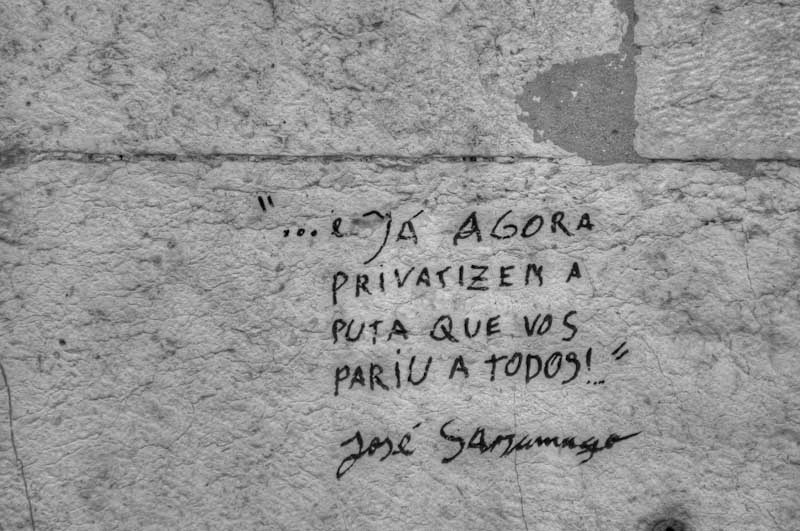 "...e JÁ AGORA
PRIVATIZEM A
PUTA QUE VOS
PARIU A TODOS!..."
José SARamago